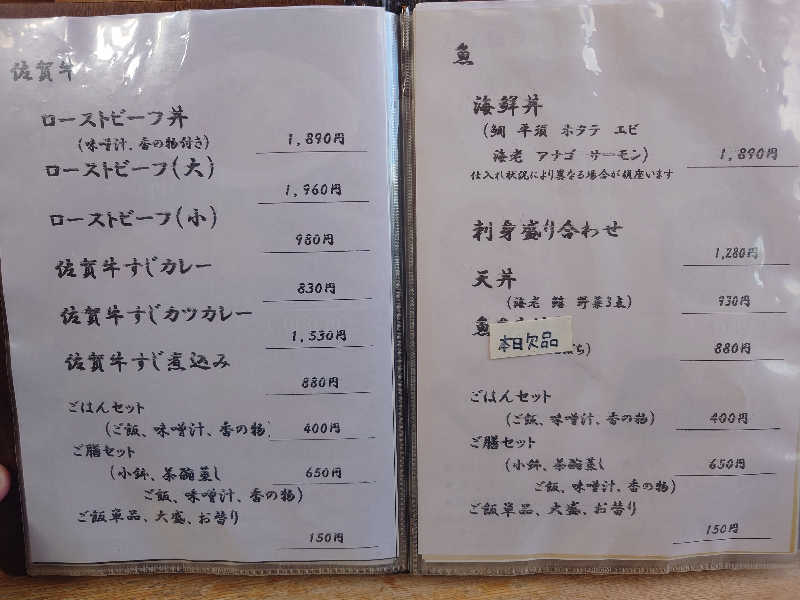 佐賀牛
ローストビーフ丼
(味噌汁、香の物付き) 1,890円
ローストビーフ(大)
1,960円
ローストビーフ(小)
980円
佐賀牛すじカレー
830円
佐賀牛すじカツカレー
1,530円
佐賀牛すじ煮込み
880円
ごはんセット
(ご飯、味噌汁、香の物) 400円
ご膳セット
(小鉢、茶碗蒸し 650円
ご飯、味噌汁、香の物)
ご飯単品、大盛、お替り
150円
魚
海鮮丼
(鯛 平須 ホタテ エビ
海老 アナゴ サーモン) 1,890円
仕入れ状況により異なる場合が御座います
刺身盛り合わせ
1,280円
天丼
(海老 鱚 野菜3点) 930円
魚
本日欠品
880円
ごはんセット
(ご飯、味噌汁、香の物) 400円
ご膳セット
(小鉢、茶碗蒸し 650円
ご飯、味噌汁、香の物)
ご飯単品、大盛、お替り
150円